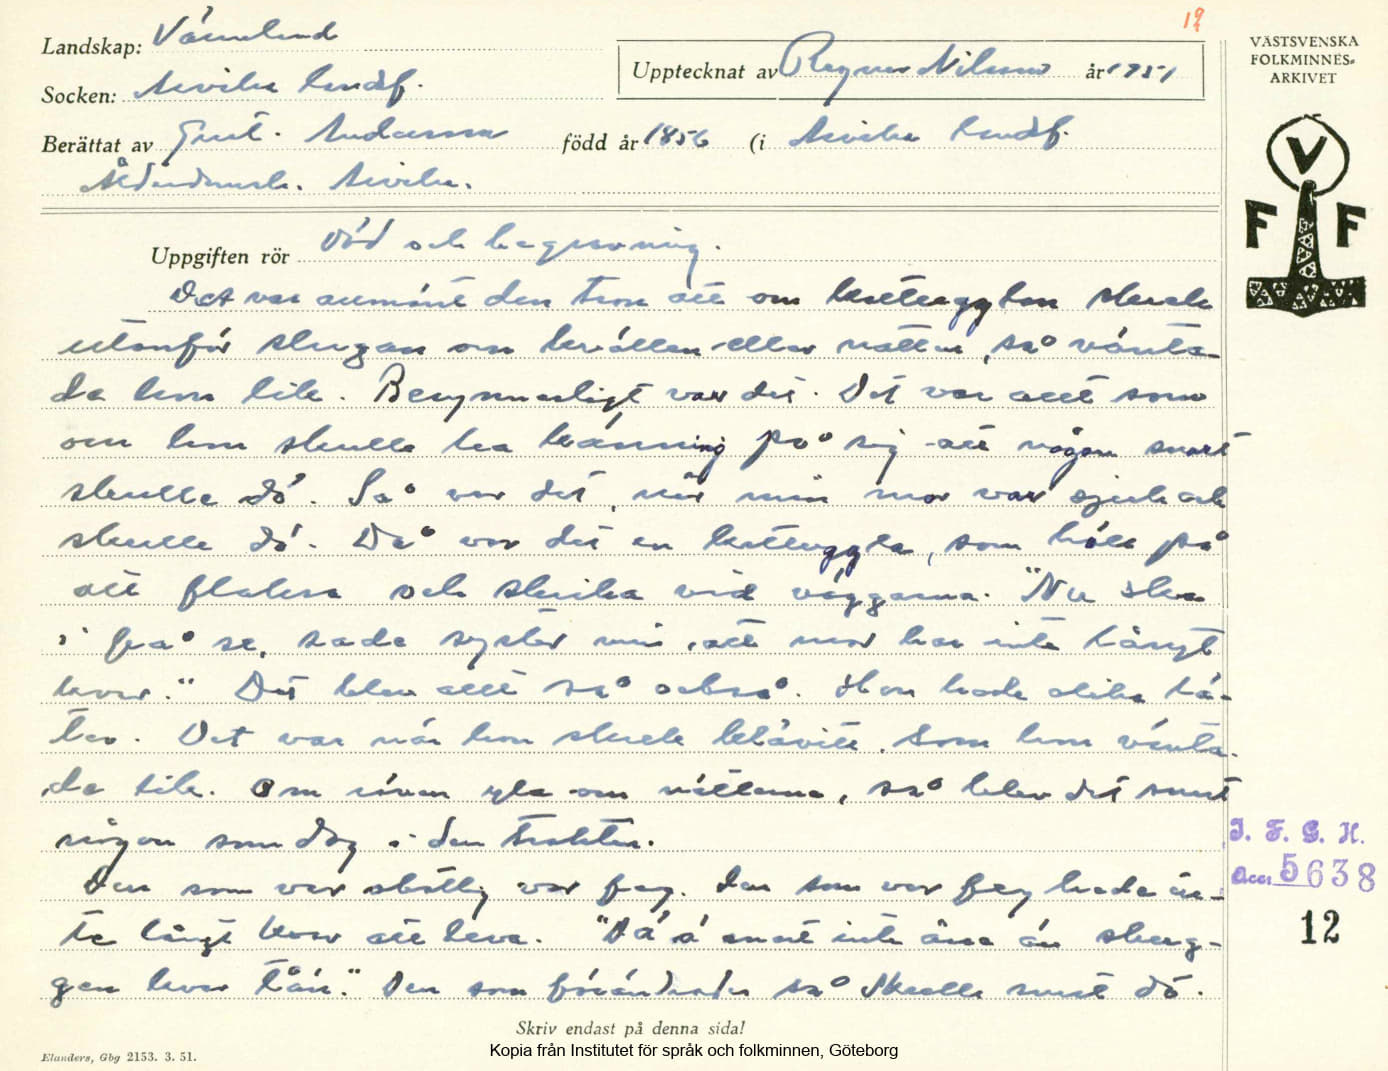 12
Landskap: Värmland
Socken: Arvika landsf.
Upptecknat av Ragnar Nilsson år 1951
VÄSTSVENSKA
FOLKMINNES-
ARKIVET
Berättat av Gust. Andersson född år 1856 (i Arvika landsf.
Ålderdomsh. Arvika.
V
F F
Uppgiften rör Död och begravning.
Det var allmänt den tron att om kattugglan skrek
utanför stugan om kvällen eller natten, så vänta-
de hon lik. Besynnerligt var det. Det var allt som
om hon skulle ha känning på sig att någon snart
skulle dö. Så var det, när min mor var sjuk och
skulle dö. Då var det en kattuggla, som höll på
att flaksa och skrika vid väggarna. "Nu ska
i få se, sade syster min, att mor har inte långt
kvar." Det blev allt så också. Hon hade olika lä-
ten. Det var när hon skrek klävitt som hon vänta-
de lik. Om räven yla om nätterna, så blev det snart
någon som dog i den trakten.
Den som var skötlig var feg. Den som var feg hade in-
te långt kvar att leva. "Dä ä snart inte ana än skug-
gen kvar tån." Den som förändrades så skulle snart dö.
I. F. G. H.
Acc. 5638
12
Skriv endast på denna sida!
Elanders, Gbg 2153. 3. 51.
Kopia från Institutet för språk och folkminnen, Göteborg